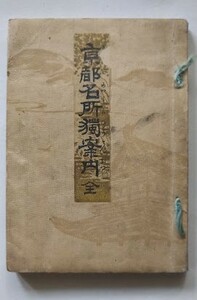 京都名所獨案内 全